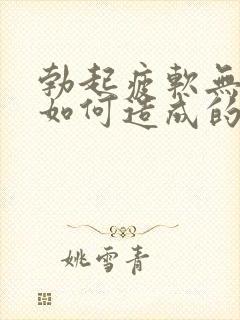 勃起疲軟無
如何造成的
姚雪青